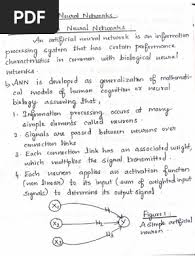 PDF
Neural Networks
Neural Networks
An artificial neural network is an information
processing system that has certain performance
characteristics in common with biological neural
networks.
ANN is developed as generalization of mathemati-
cal models of human cognition or neural
biology, assuming that;
1. Information processing occurs at many
simple elements called neurons.
2. Signals are passed between neurons over
connection links
3. Each connection link has an associated weight,
which multiplies the signal transmitted.
4. Each neuron applies an activation function
(non linear) to its input (sum of weighted input
signals) to determine its output signal
X1
X2
X3
Y
Figure 1
A simple artificial
neuron